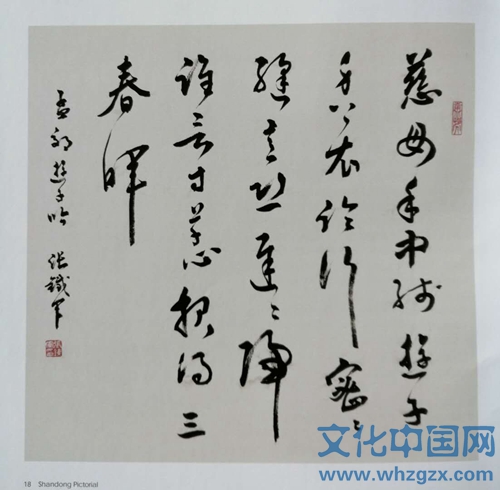 慈母手中线遊子
身上衣临行密々
缝意恐迟々归
谁言寸草心报得三
春晖
孟郊遊子吟 张鐵军
18 Shandong Pictorial
文化中国网
www.whzgzx.com